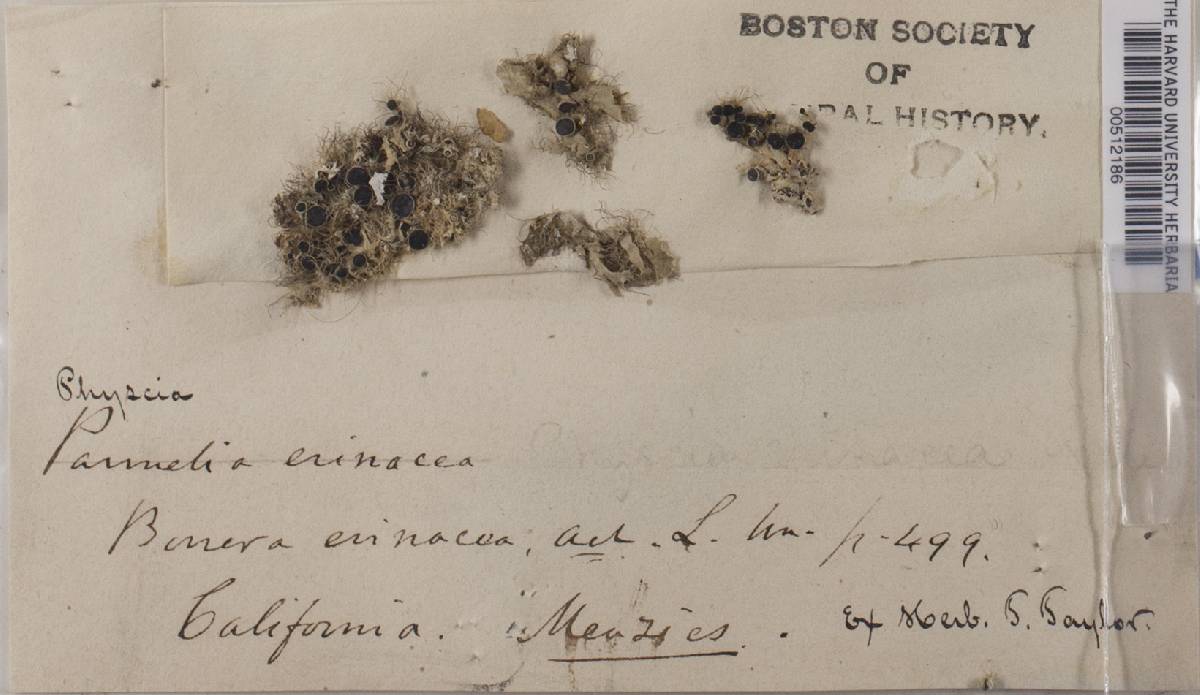 BOSTON SOCIETY
OF
RAL HISTORY.
THE HARVARD UNIVERSITY HERBARIA
00512186
Physcia
Parmelia erinacea
Borrera erinacea, Ach. L. Un. p. 499.
California. Menzies.
Ex Herb. T. Taylor.